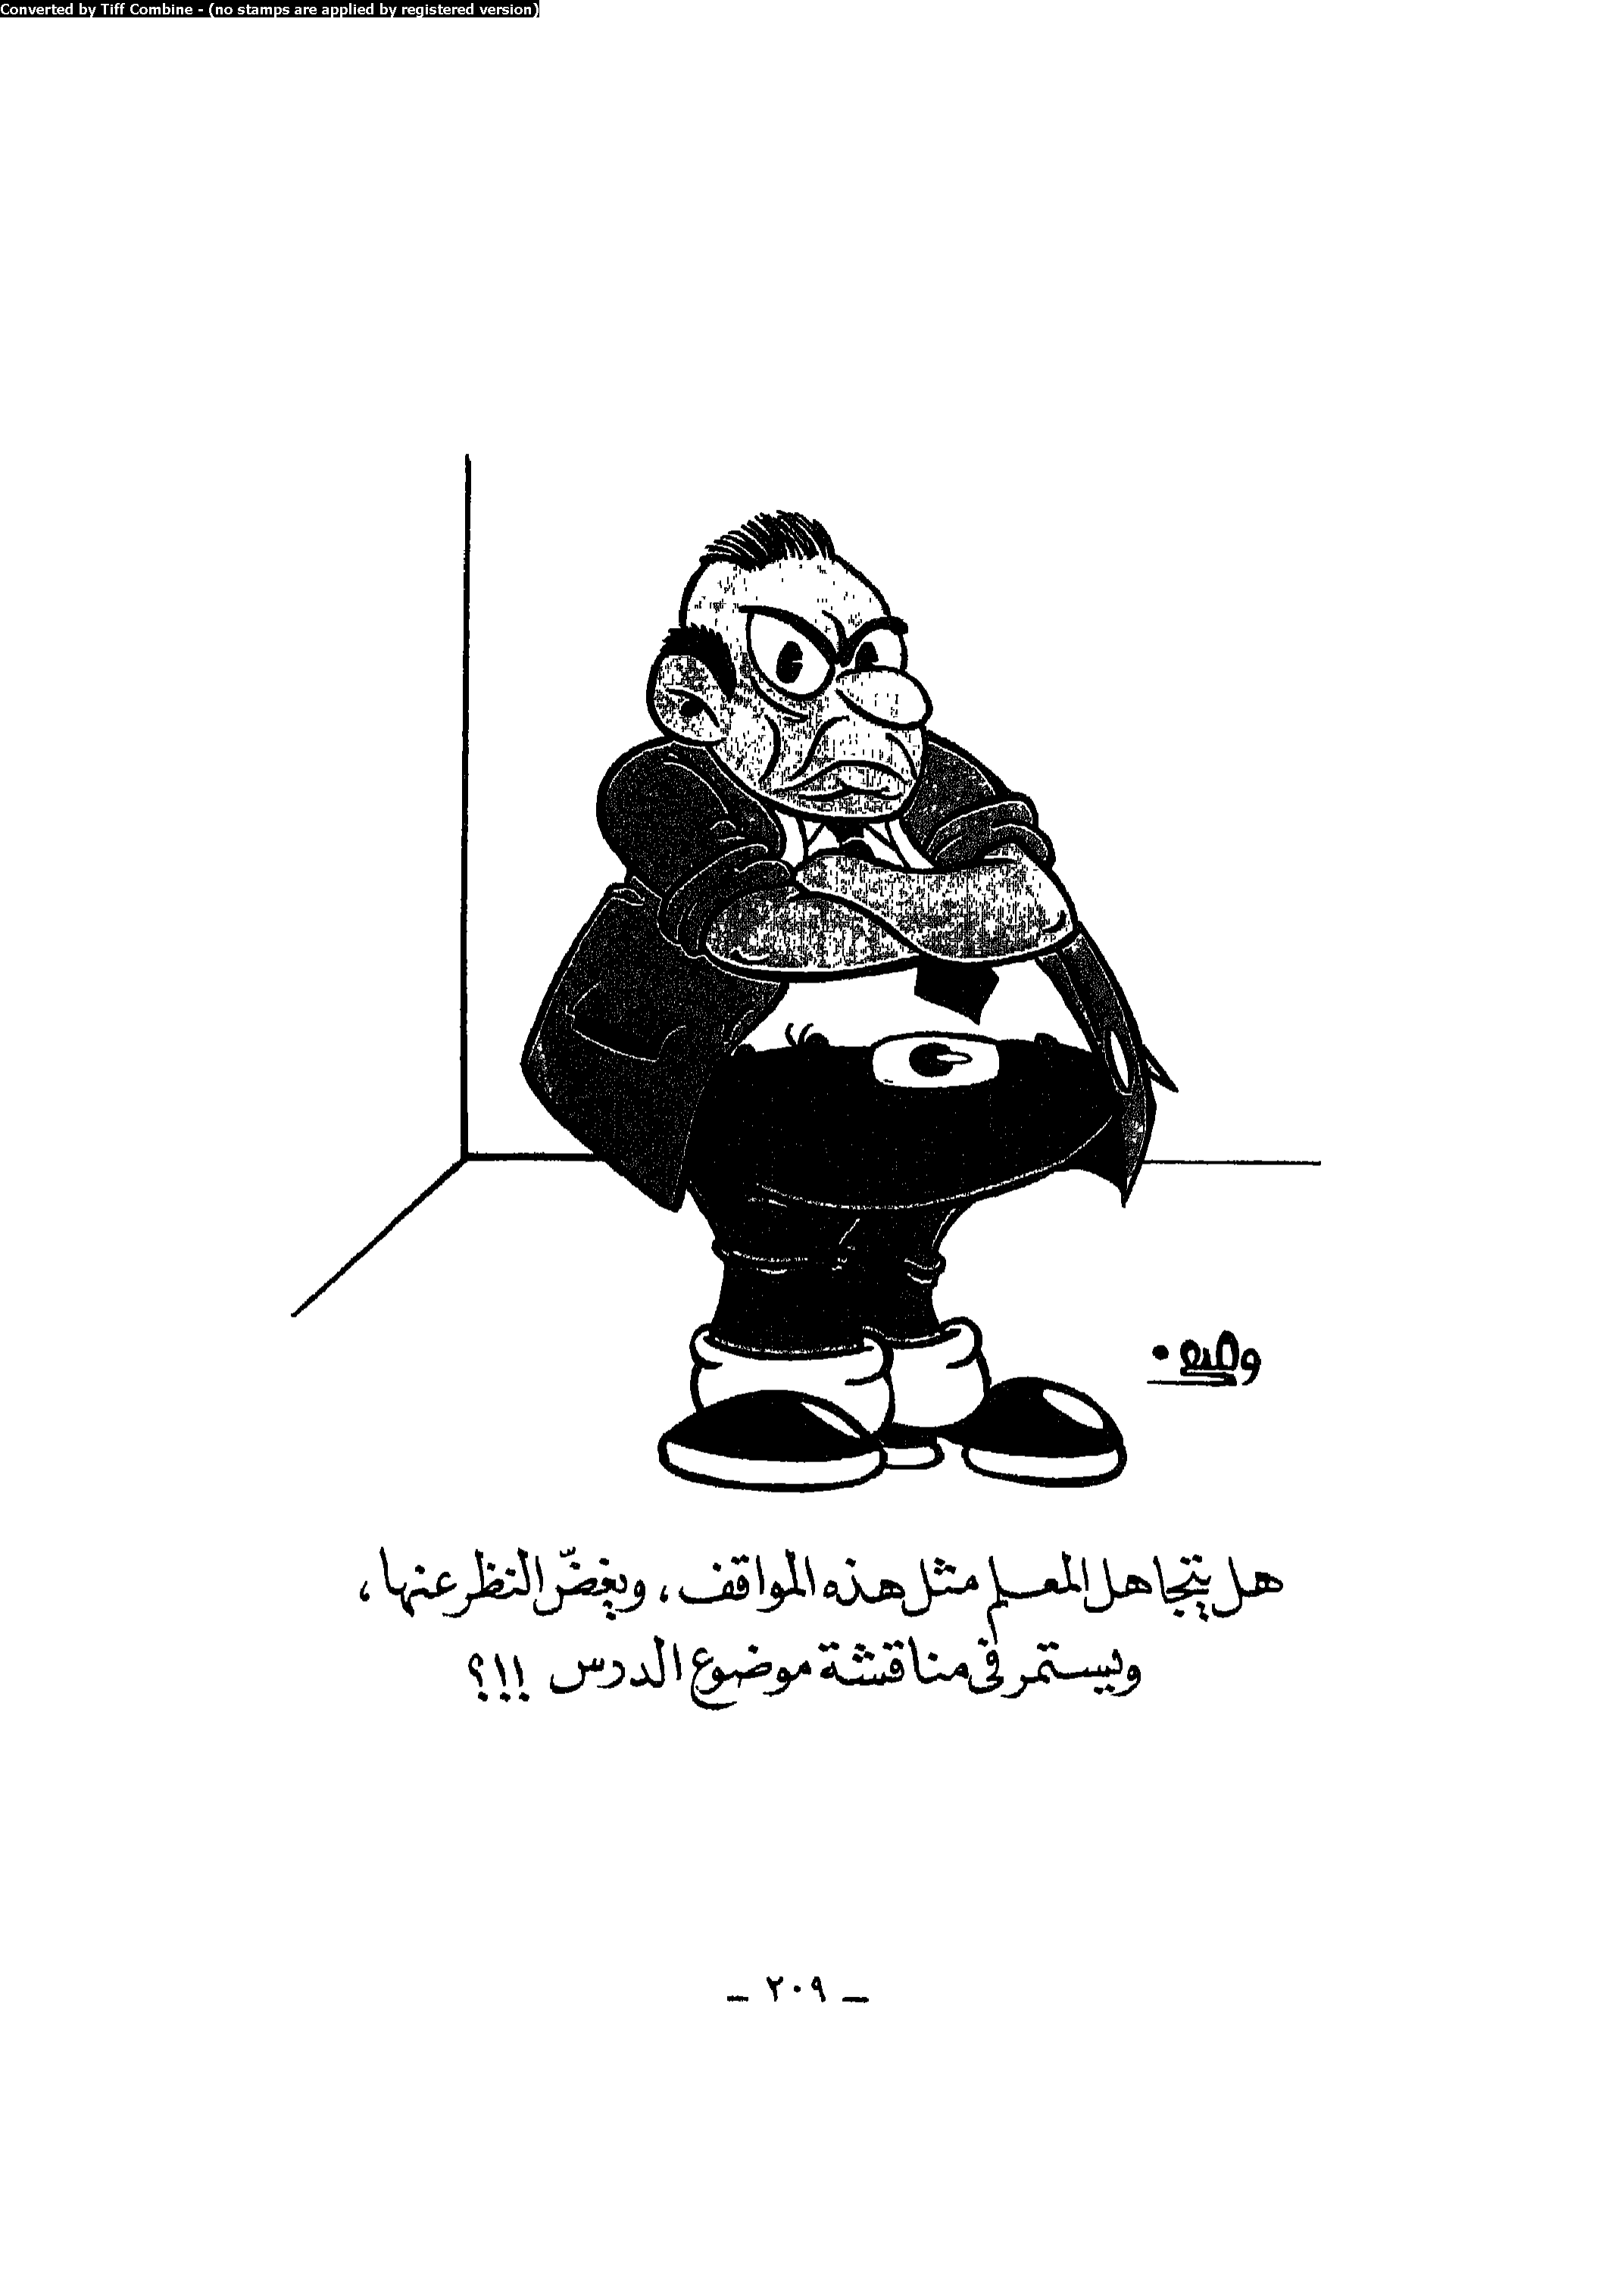 Converted by Tiff Combine - (no stamps are applied by registered version)
هل يتجاهل المعلم مثل هذه المواقف، ويغضّ النظر عنها،
ويستمر فى مناقشة موضوع الدرس !!؟
ـ ٢٠٩ ـ